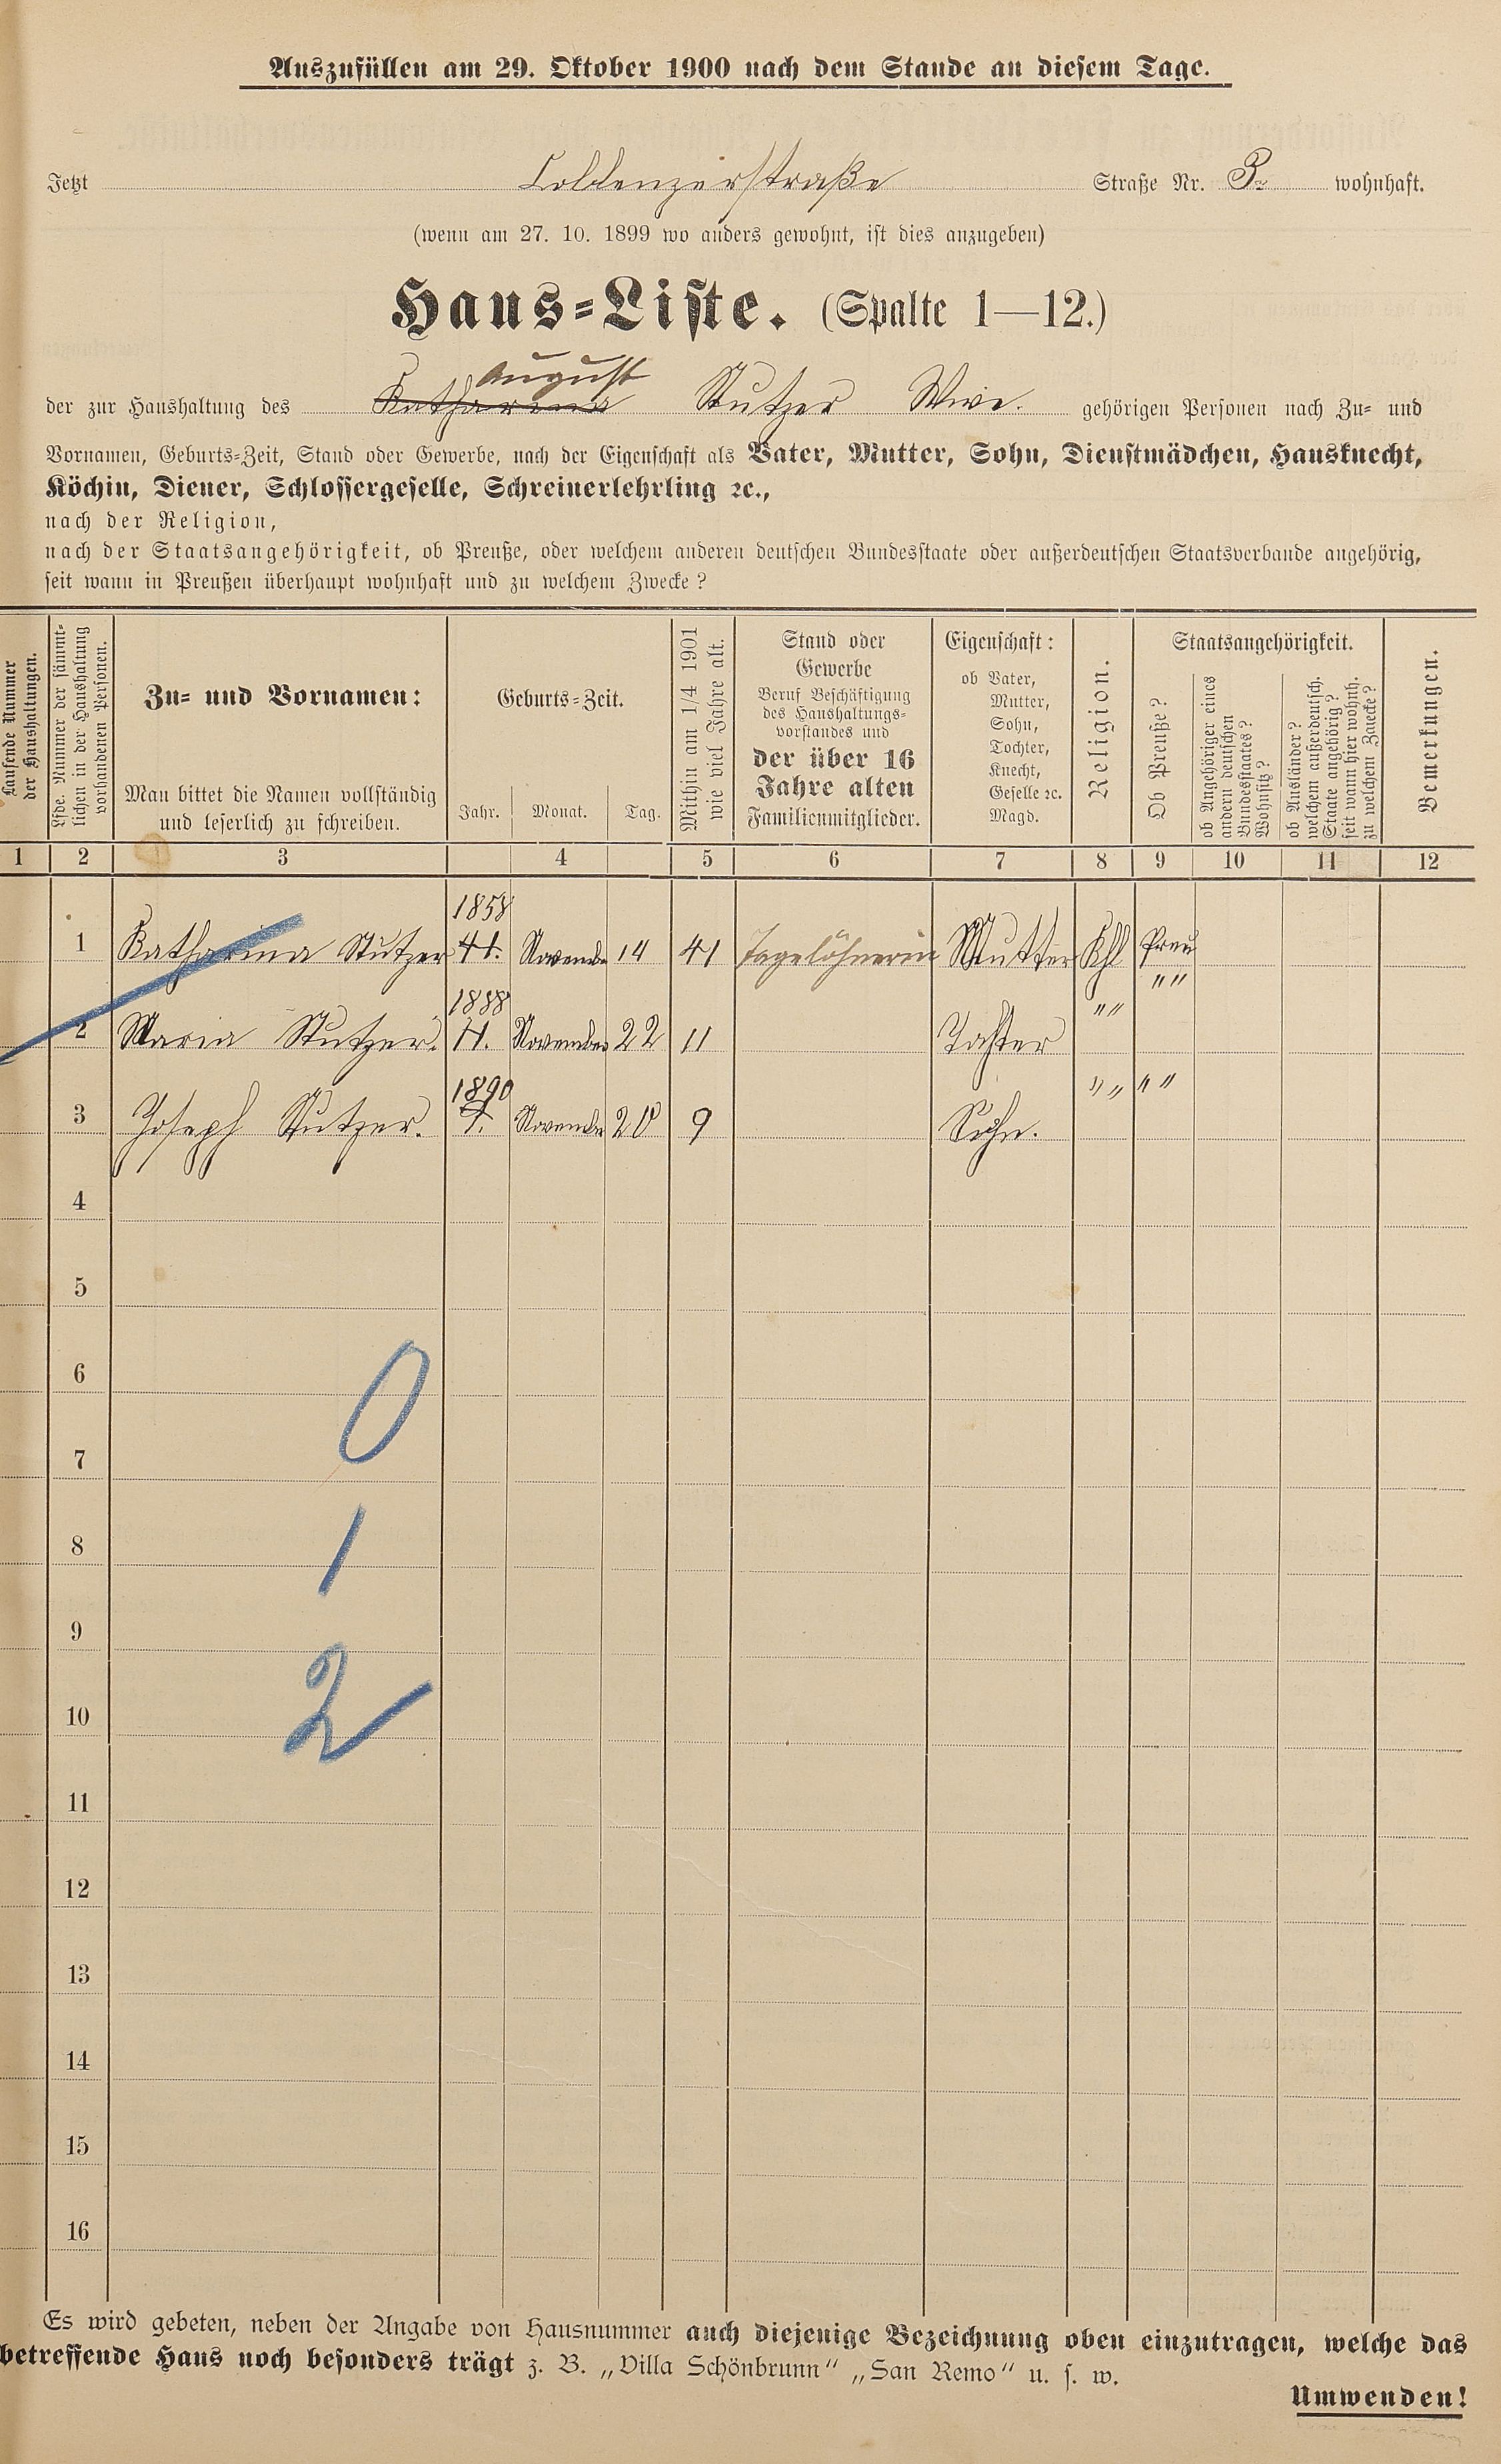 Auszufüllen am 29. Oktober 1900 nach dem Stande an diesem Tage.
Jetzt Coblenzerstraße Straße Nr. 3. wohnhaft.
(wenn am 27. 10. 1899 wo anders gewohnt, ist dies anzugeben)
Haus=Liste. (Spalte 1—12.)
August
der zur Haushaltung des Katharina Stutzer Wwe. gehörigen Personen nach Zu= und
Vornamen, Geburts=Zeit, Stand oder Gewerbe, nach der Eigenschaft als Vater, Mutter, Sohn, Dienstmädchen, Hausknecht,
Köchin, Diener, Schlossergeselle, Schreinerlehrling ꝛc.,
nach der Religion,
nach der Staatsangehörigkeit, ob Preuße, oder welchem anderen deutschen Bundesstaate oder außerdeutschen Staatsverbande angehörig,
seit wann in Preußen überhaupt wohnhaft und zu welchem Zwecke?
Laufende Nummer
der Haushaltungen.
Lfde. Nummer der sämmt=
lichen in der Haushaltung
vorhandenen Personen.
Zu= und Vornamen:
Man bittet die Namen vollständig
und leserlich zu schreiben.
Geburts=Zeit.
Jahr. Monat. Tag.
Mithin am 1/4 1901
wie viel Jahre alt.
Stand oder
Gewerbe
Beruf Beschäftigung
des Haushaltungs=
vorstandes und
der über 16
Jahre alten
Familienmitglieder.
Eigenschaft:
ob Vater,
Mutter,
Sohn,
Tochter,
Knecht,
Geselle ꝛc.
Magd.
Religion.
Staatsangehörigkeit.
Ob Preuße?
ob Angehöriger eines
andern deutschen
Bundesstaates?
Wohnsitz?
ob Ausländer?
welchem außerdeutsch.
Staate angehörig?
seit wann hier wohnh.
zu welchem Zwecke?
Bemerkungen.
1 2 3 4 5 6 7 8 9 10 11 12
1858
1 Katharina Stutzer 41. November 14 41 Tagelöhnerin Mutter Khl Preu
" "
1888 " "
2 Maria Stutzer. 11. November 22 11 Tochter
1890 " " " "
3 Joseph Stutzer. 9. November 20 9 Sohn.
4
5
6
0
7
8
1
9
2
10
11
12
13
14
15
16
Es wird gebeten, neben der Angabe von Hausnummer auch diejenige Bezeichnung oben einzutragen, welche das
betreffende Haus noch besonders trägt z. B. „Villa Schönbrunn" „San Remo" u. s. w.
Umwenden!